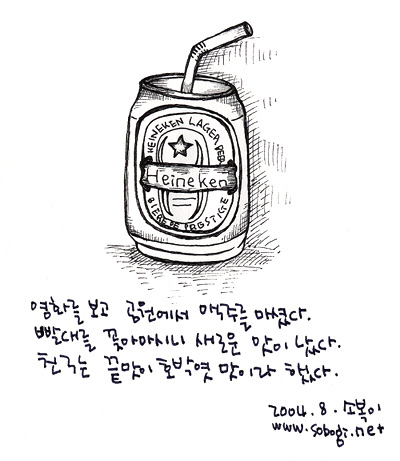 HEINEKEN LAGER BEER
Heineken
BIERE DE PRESTIGE
영화를 보고 공원에서 맥주를 마셨다.
빨대를 꽂아마시니 새로운 맛이 났다.
천국는 끝맛이 호박엿 맛이라 했다.
2004. 8. 소복이
www.sobogi.net